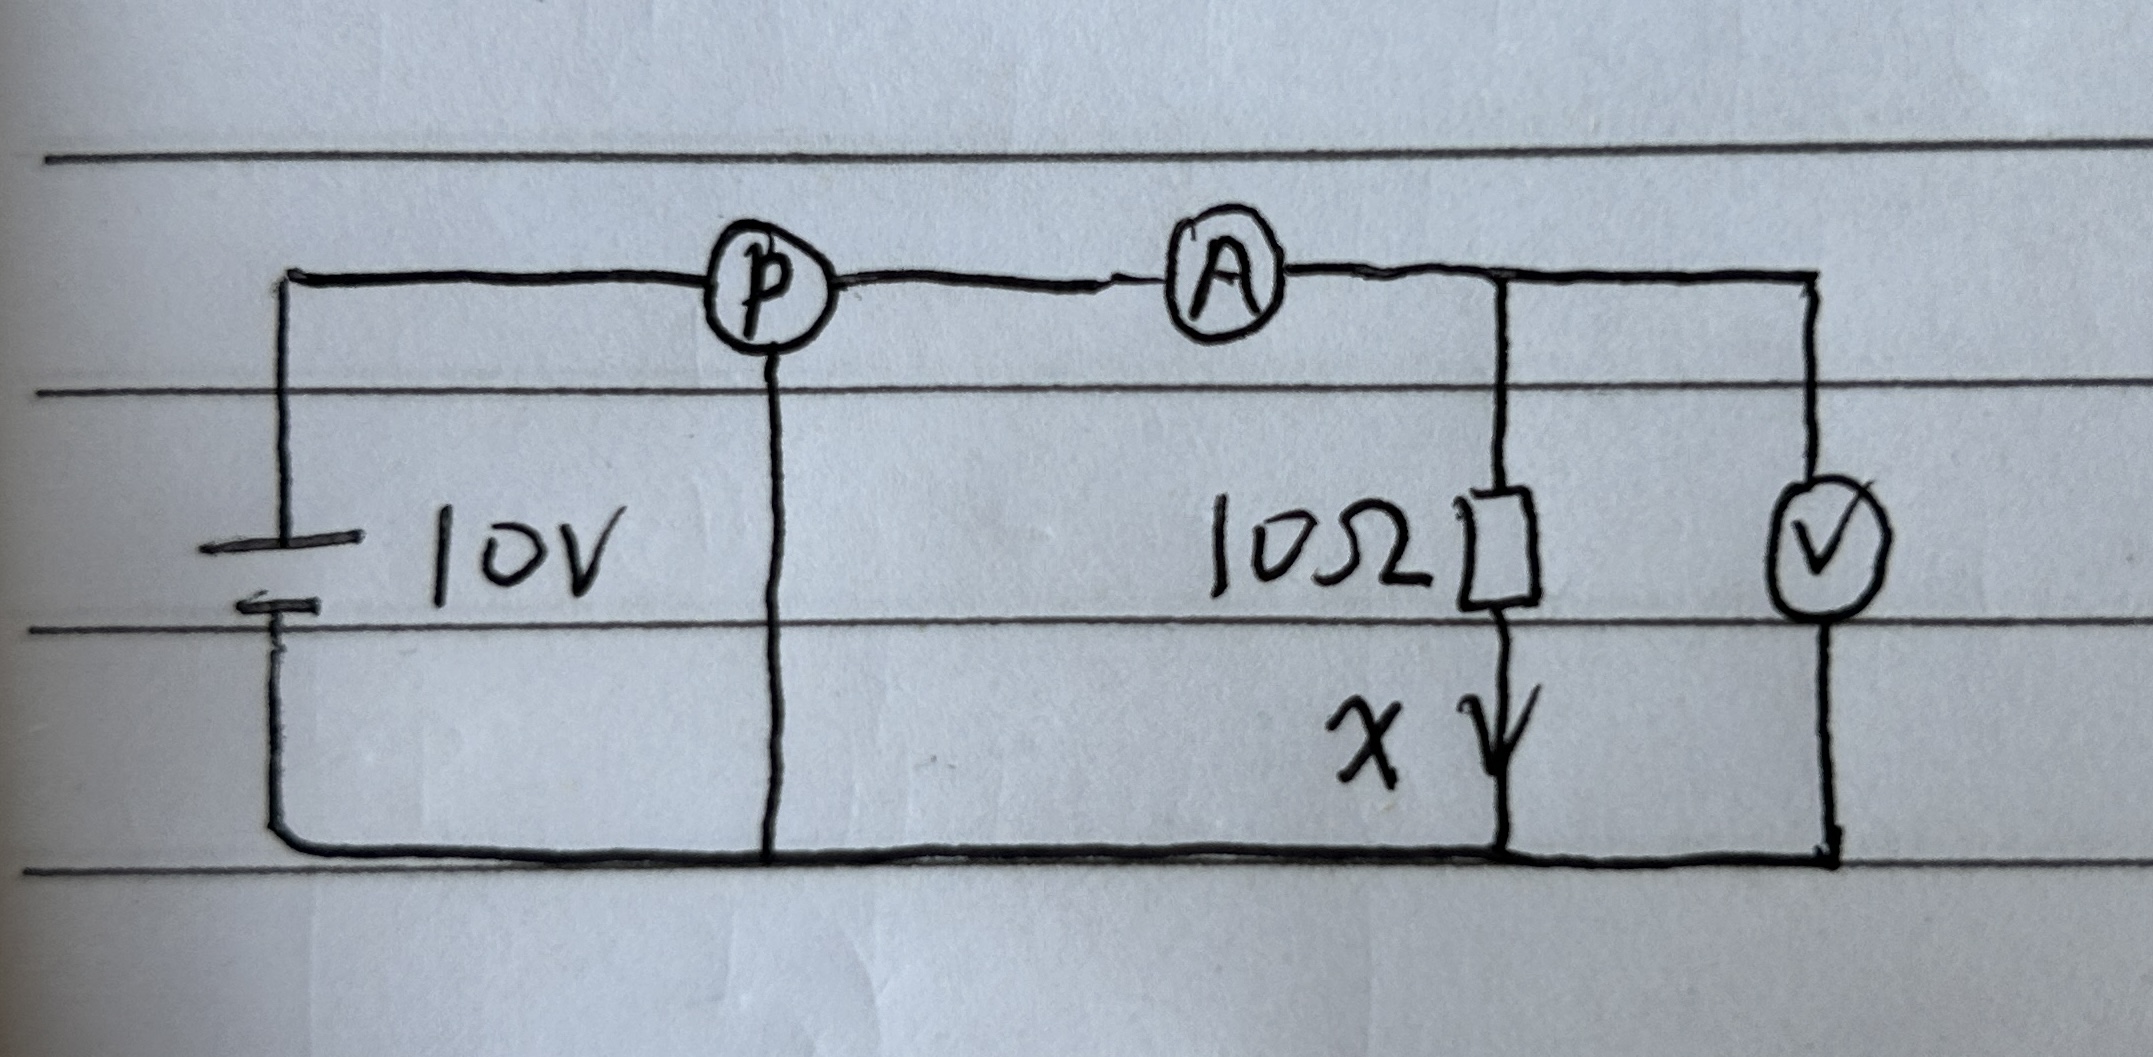 P
A
10V
10Ω
V
x